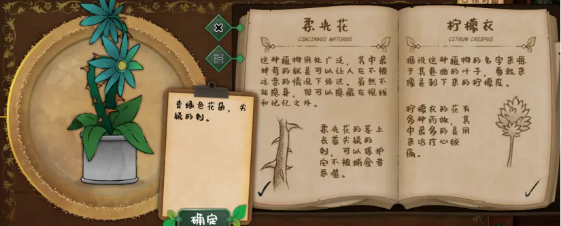 青绿色花朵，尖
锐的刺。
确定
柔光花
CINCINNUS MATURUS
这种植物用处广泛，其中最
神奇的就是可以让人在不被
注意的情况下经过。虽然不
能隐身，但可以隐藏在视线
和记忆之外。
柔光花的茎上
长着尖锐的
刺，可以保护
它不被捕食者
吞噬。
柠檬衣
CITRUM CRISPUS
据说这种植物的名字来源
于其卷曲的叶子，看起来
像是剥下来的柠檬皮。
柠檬衣的花有
多种药效，其
中最多的是用
来治疗心绞
痛。